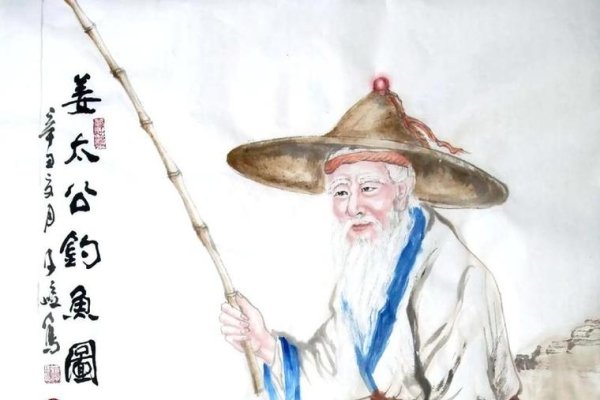 姜太公釣魚圖
辛丑夏月